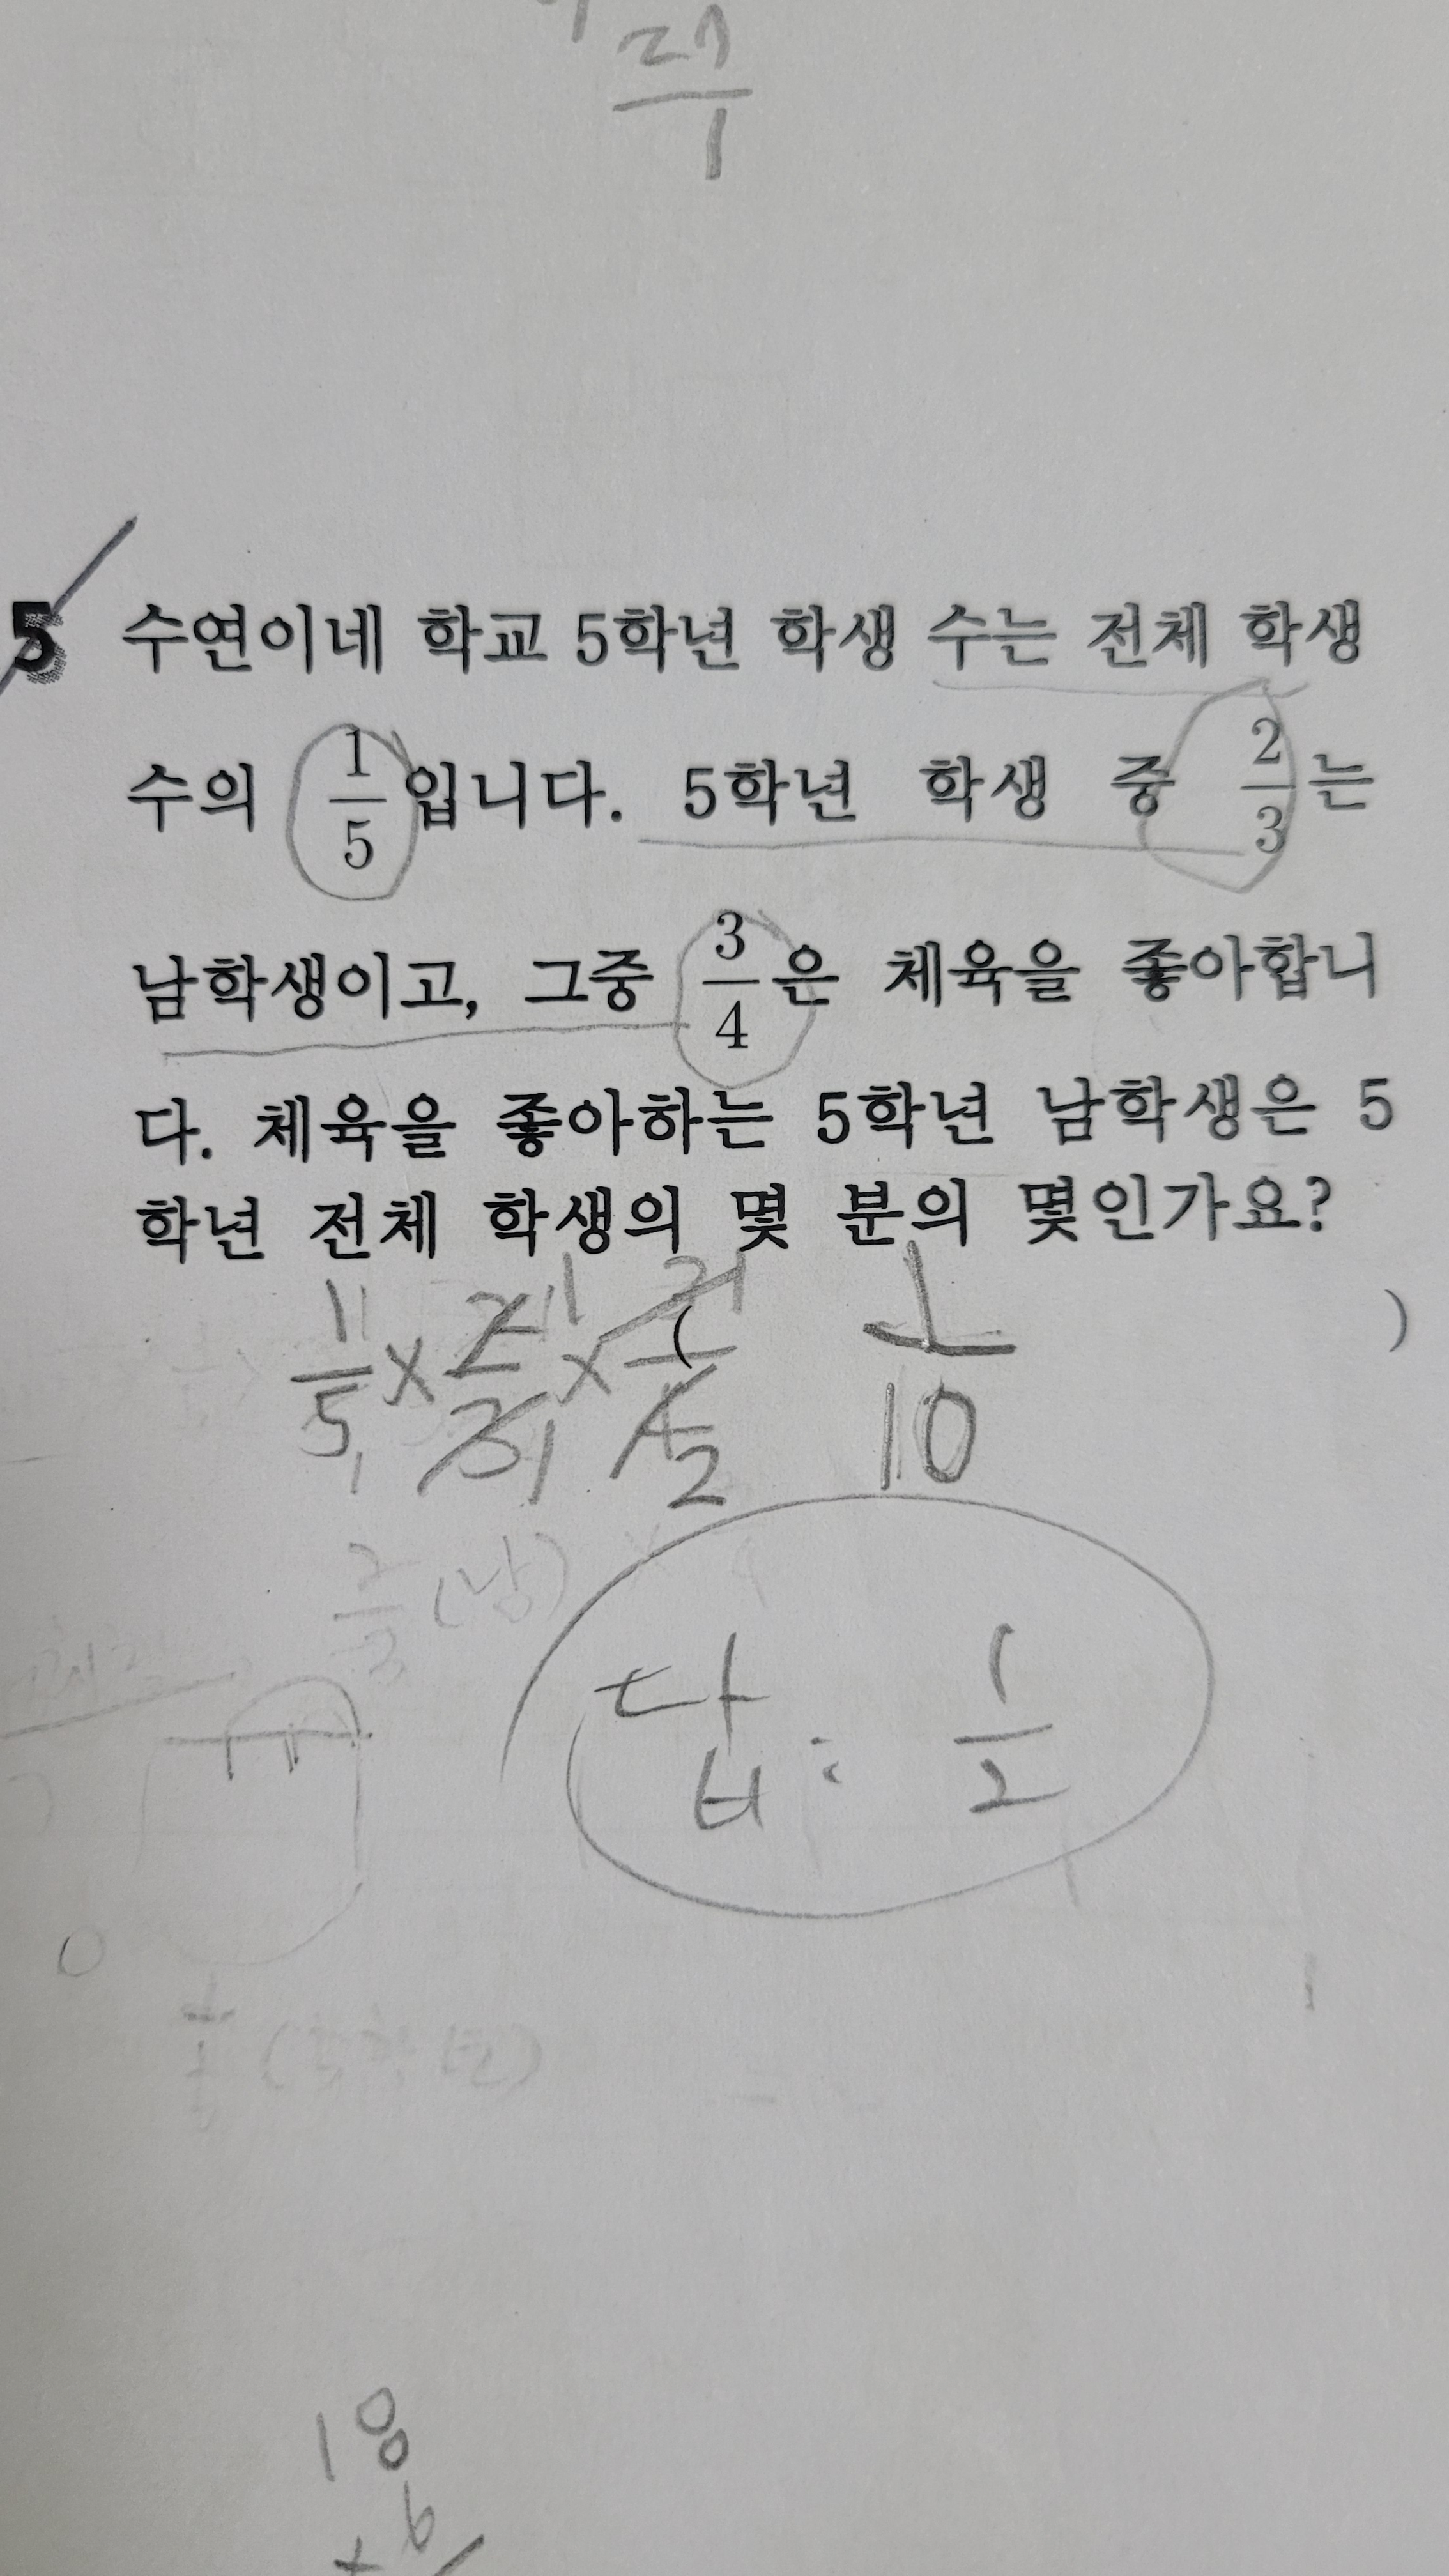 27
1
5 수연이네 학교 5학년 학생 수는 전체 학생
수의 1/5입니다. 5학년 학생 중 2/3는
남학생이고, 그중 3/4은 체육을 좋아합니
다. 체육을 좋아하는 5학년 남학생은 5
학년 전체 학생의 몇 분의 몇인가요?
( )
1/5 × 2/3 × 3/4 1/10
2/3 (남)
답: 1/2
18
6